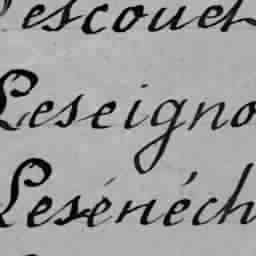 Lescouet
Leseigno
Lesénéch